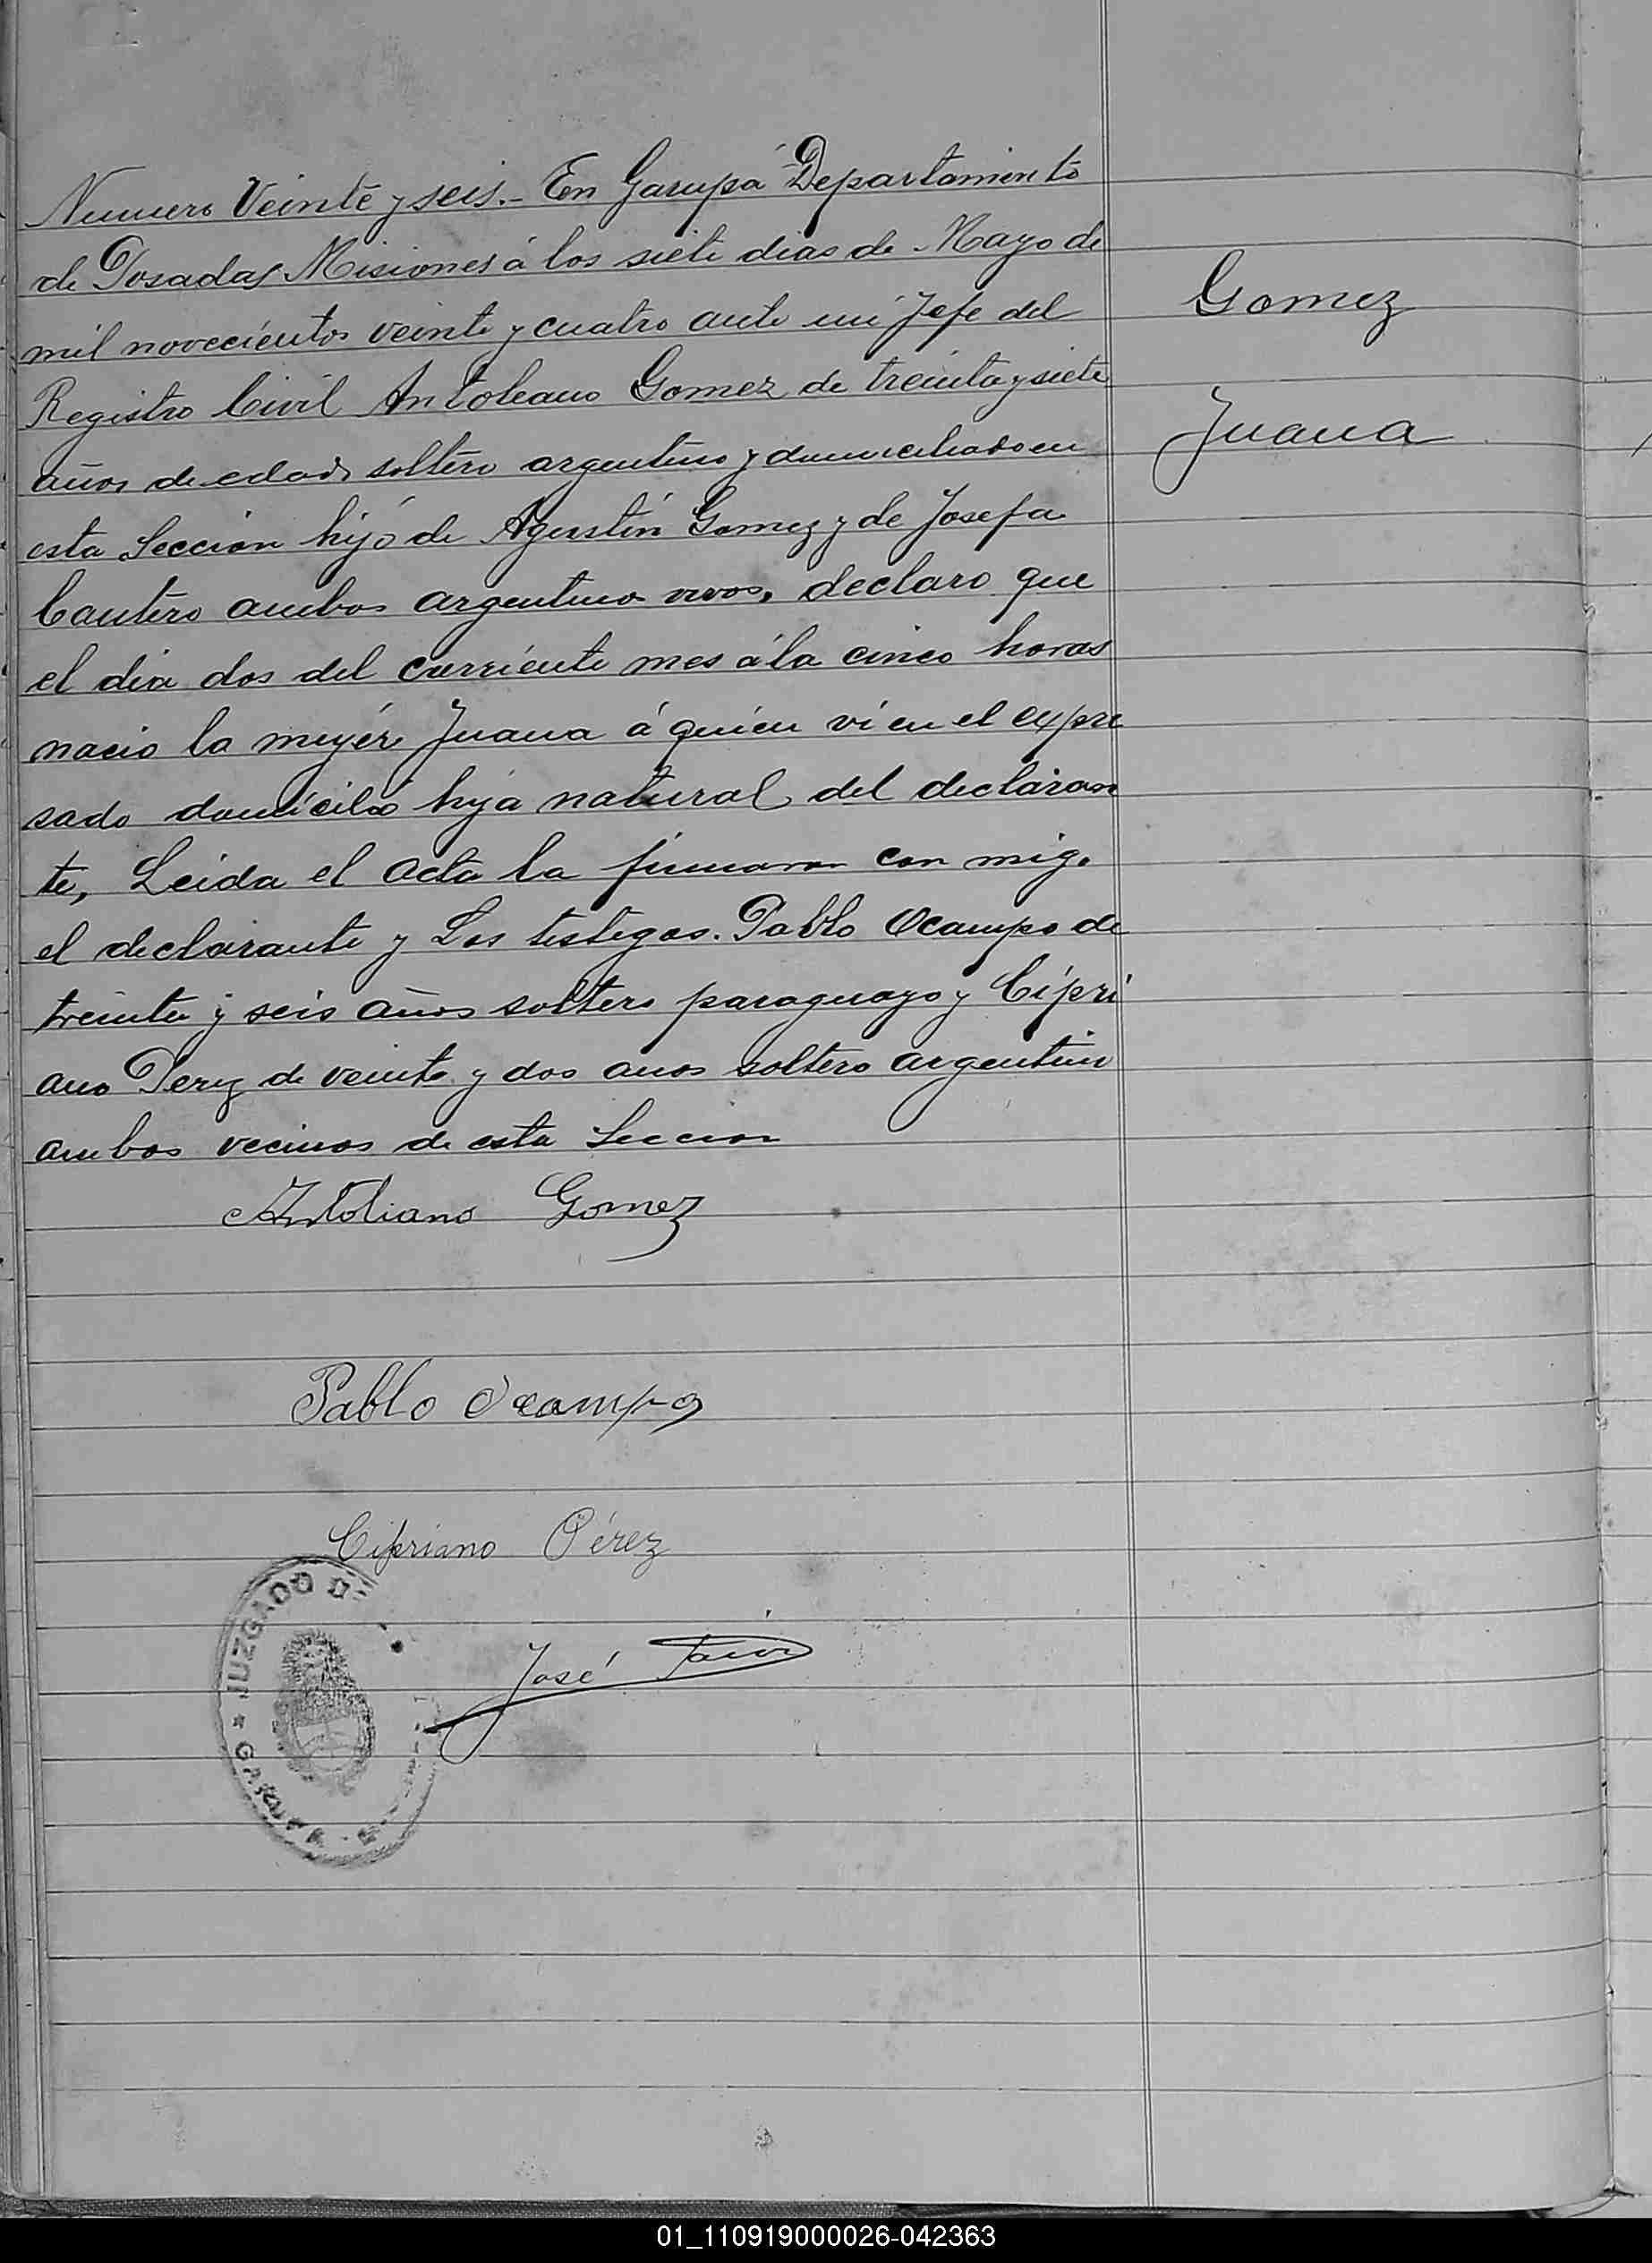 Numero Veinte y seis.- En Garupá Departamento
de Posadas Misiones á los siete dias de Mayo de
mil novecientos veinte y cuatro ante mi Jefe del
Registro Civil Antoleano Gomez de treinta y siete
años de edad soltero argentino y domiciliado en
esta Seccion hijo de Agustin Gomez y de Josefa
Cantero ambos argentinos vivos, declaro que
el dia dos del corriente mes á la cinco horas
nacio la mujer Juana á quien vi en el expre
sado domicilio hija natural del declaran
te, Leida el acta la firmaron con migo
el declarante y Los testigos. Pablo Ocampo de
treinta y seis años soltero paraguayo y Cipri
ano Perez de veinte y dos anos soltero argentino
ambos vecinos de esta Seccion
Gomez
Juana
Antoliano Gomez
Pablo Ocampo
Cipriano Pérez
José
JUZGADO DE
GARUPA
01_110919000026-042363